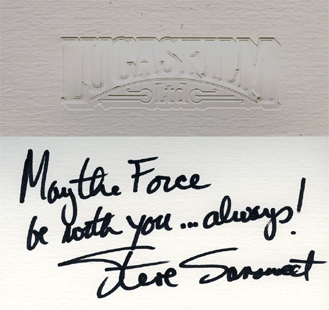 LUCASFILM
Ltd.
May the Force
be with you...always!
Steve Sansweet